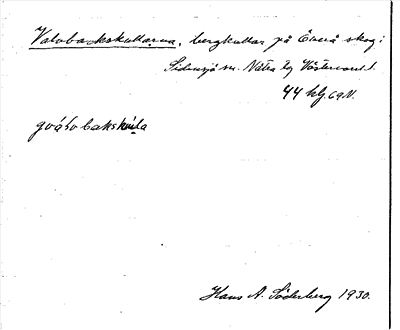 Valvbackskullarna, bergkullar på Överå skog i
Sidensjö sn. Nätra tg Västernorrl.
44 hg. 69 N.
goáƨvbakskuḷa
Hans A. Söderberg 1930.